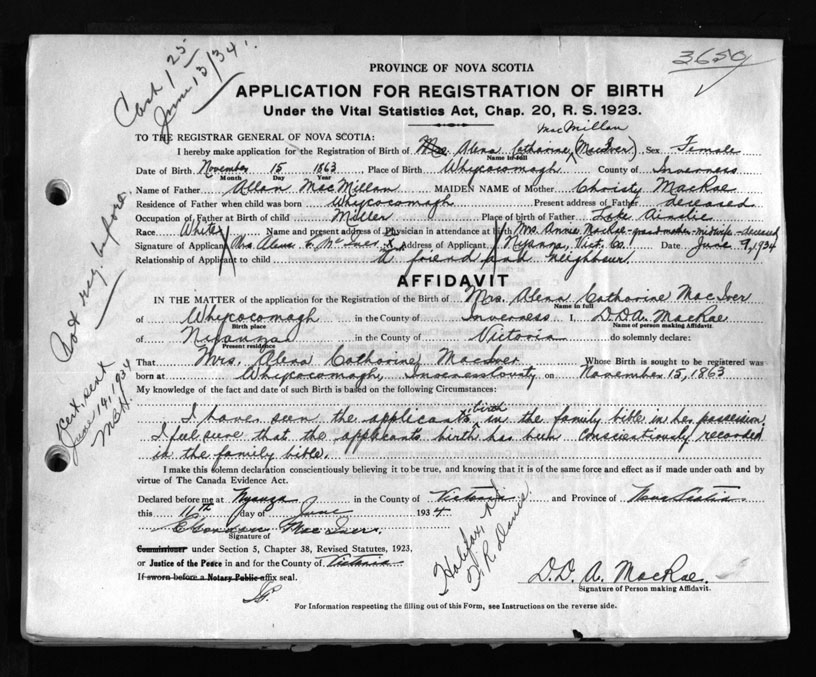 Cash 1 25
June 13/34
3650
PROVINCE OF NOVA SCOTIA
APPLICATION FOR REGISTRATION OF BIRTH
Under the Vital Statistics Act, Chap. 20, R. S. 1923.
TO THE REGISTRAR GENERAL OF NOVA SCOTIA:
MacMillan
I hereby make application for the Registration of Birth of Mrs. Alena Catharine (MacIver) Sex Female
Name in full
Date of Birth November 15 1863 Place of Birth Whycocomagh County of Inverness
Month Day Year
Name of Father Allan MacMillan MAIDEN NAME of Mother Christy MacRae
Residence of Father when child was born Whycocomagh Present address of Father deceased
Occupation of Father at Birth of child Miller Place of birth of Father Lake Ainslie
Race White Name and present address of Physician in attendance at birth Mrs. Annie MacRae - grandmother - midwife - deceased
Signature of Applicant Mrs Alena C. McIver X Address of Applicant Nyanza, Vict. Co. Date June 9, 1934
Relationship of Applicant to child A friend and neighbour.
AFFIDAVIT
IN THE MATTER of the application for the Registration of the Birth of Mrs. Alena Catharine MacIver
Name in full
of Whycocomagh in the County of Inverness I, D.D.A. MacRae
Birth place Name of person making Affidavit.
of Nyanza in the County of Victoria do solemnly declare:
Present residence
That Mrs. Alena Catharine MacIver Whose Birth is sought to be registered was
born at Whycocomagh, Inverness County on November 15, 1863
My knowledge of the fact and date of such Birth is based on the following Circumstances:
I have seen the applicants birth in the family bible in her possession.
I feel sure that the applicants birth has been conscientiously recorded
in the family bible.
I make this solemn declaration conscientiously believing it to be true, and knowing that it is of the same force and effect as if made under oath and by
virtue of The Canada Evidence Act.
Declared before me at Nyanza in the County of Victoria and Province of Nova Scotia
this 11th day of June 1934
MacIver
Signature of
Commissioner under Section 5, Chapter 38, Revised Statutes, 1923,
or Justice of the Peace in and for the County of Victoria
If sworn before a Notary Public affix seal.
D.D.A. MacRae.
Signature of Person making Affidavit.
For Information respecting the filling out of this Form, see Instructions on the reverse side.
Not reg. before.
Cert. sent
June 14, 1934
Halifax, N.S.
R. Davis